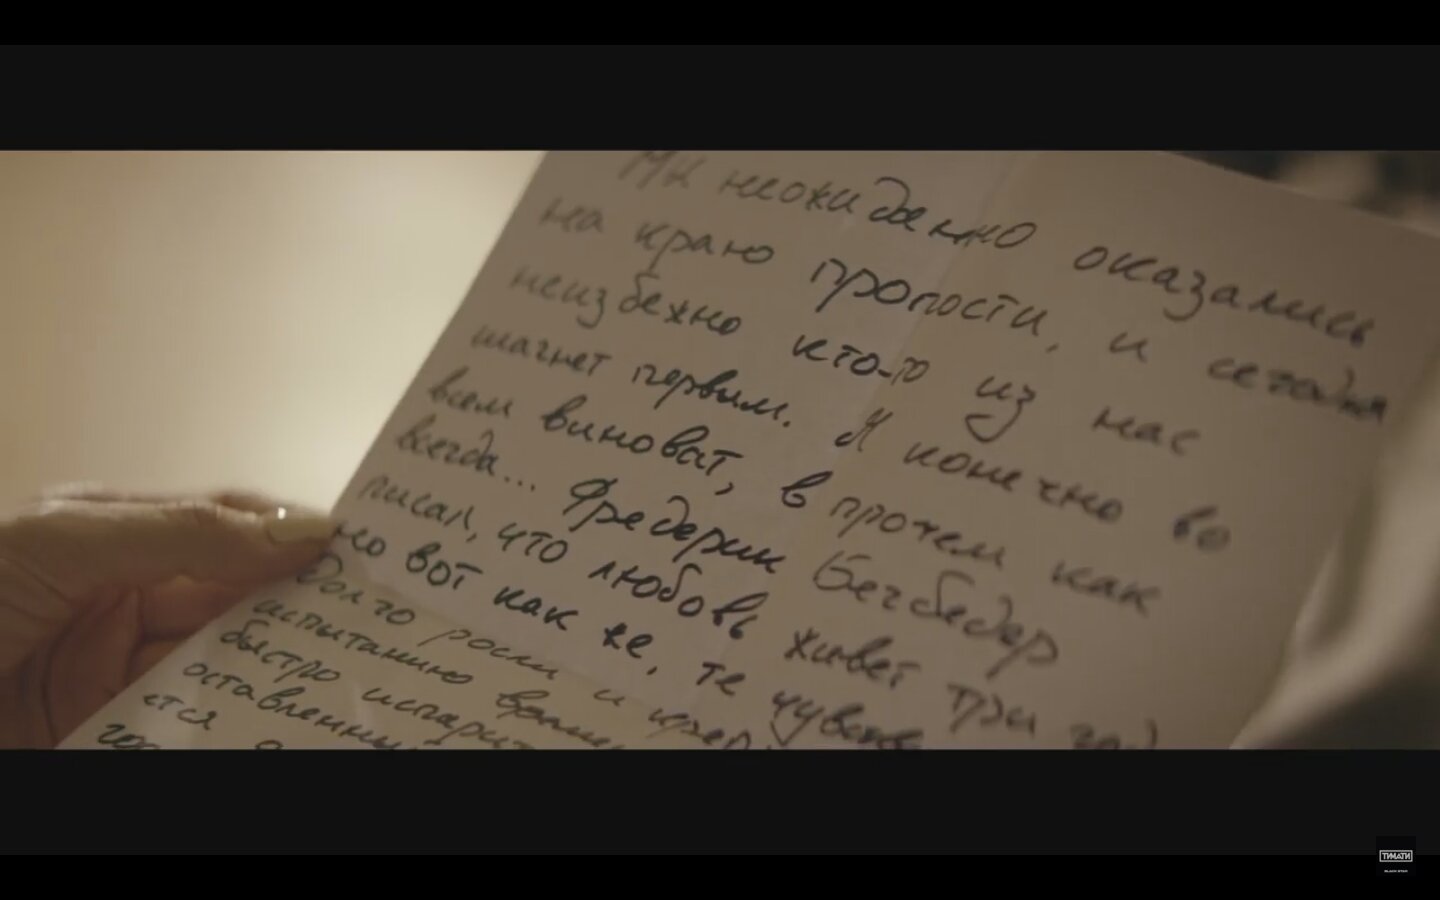 Мы неожиданно оказались
на краю пропости, и сегодня
неизбежно кто-то из нас
шагнет первым. Я конечно во
всем виноват, впрочем как
всегда... Фредерик Бегбедер
писал, что любовь живет три год
но вот как же, те чувства
долго росли и креп
испытанию време
быстро испарит
оставленны
ется
ТИМАТИ
BLACK STAR